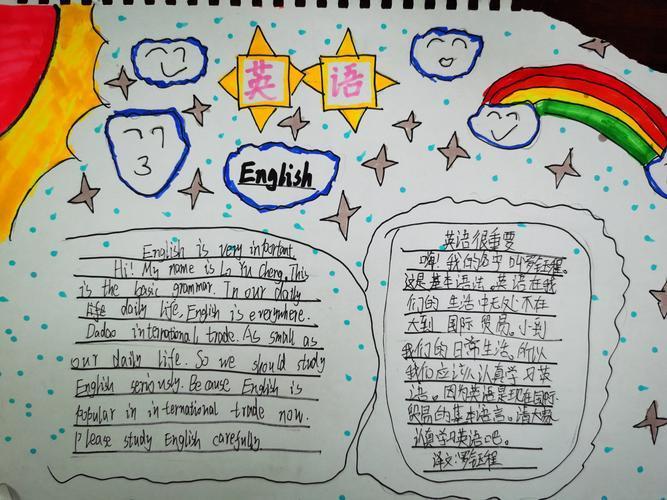 英语
English
English is very important
Hi! My name is Lo Yu Cheng. This
is the basic grammar. In our daily
life daily life. English is everywhere.
Dadao international trade. As small as
our daily life. So we should study
English seriously. Because English is
popular in international trade now.
Please study English carefully
英语很重要
嗨!我的名中叫罗钰程。
这是基本语法。英语在我
们的生活中无处不在
大到国际贸易。小到
我们的日常生活。所以
我们应该认真学习英
语。因为英语是现在国际
贸易的基本语言。请大家
认真学习英语吧。
译文:罗钰程